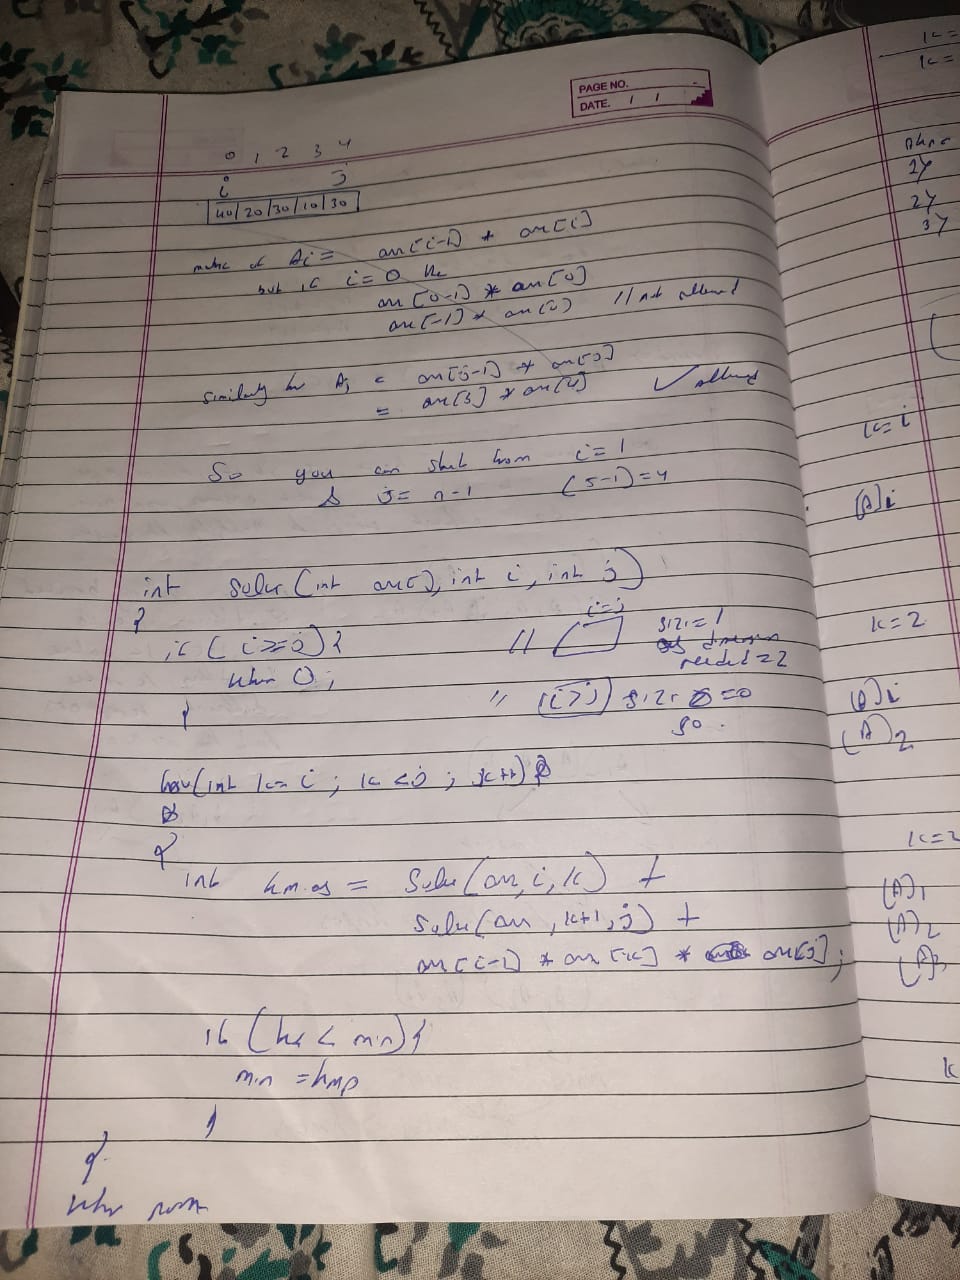 PAGE NO.
DATE. / /
0 1 2 3 4
i j
40/20/30/10/30
of Ai = arr[i-1] * arr[i]
but if i = 0
arr[0-1] * arr[0]
arr[-1] * // not allowed
similarly Aj = arr[j-1] * arr[j]
= arr[3] * arr[4] ✓ allowed
So you can start from i = 1
& j = n-1 (5-1) = 4
int solve (int arr[], int i, int j)
{
if (i>=j) { // i=j size = 1
dimension
needed = 2
return 0; // (i>j) size = 0
}
so
for(int k= i ; k<j ; k++)
{
int = Solve (arr, i, k) +
Solve (arr, k+1, j) +
arr[i-1] * arr[k] * arr[j];
if ( < min) {
min =
}
}
return
k=
k=
k=i
(A)i
k=2
(A)i
(A)2
k=2
(A)1
(A)2
(A)3
k